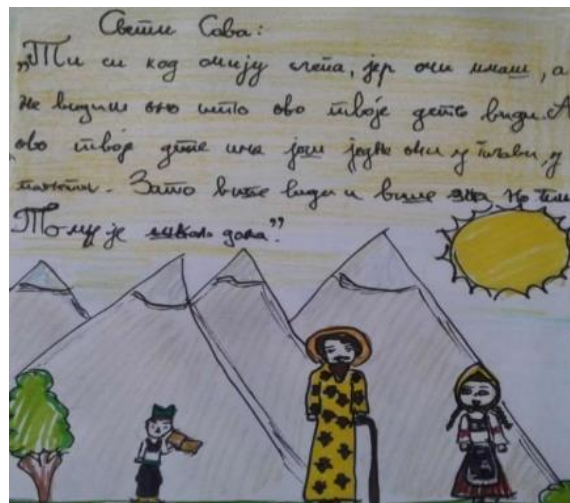 Свети Сава:
„Ти си код очију слепа, јер очи имаш, а
не видиш оно што ово твоје дете види. А
ово твоје дете има још једне очи у глави, у
памети. Зато више види и више зна но ти.
То му је школа дала.”